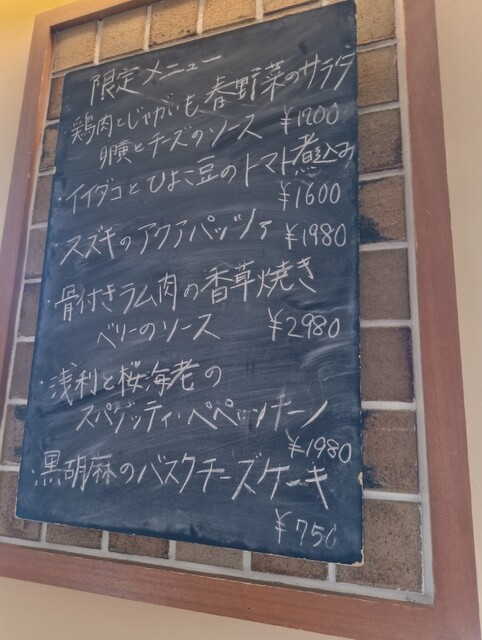 限定メニュー
・鶏肉とじゃがいも、春野菜のサラダ
卵黄とチーズのソース ¥1200
・イイダコとひよこ豆のトマト煮込み
¥1600
・スズキのアクアパッツァ ¥1980
・骨付きラム肉の香草焼き
ベリーのソース ¥2980
・浅利と桜海老の
スパゲッティ・ペペロンチーノ
¥1980
・黒胡麻のバスクチーズケーキ
¥750